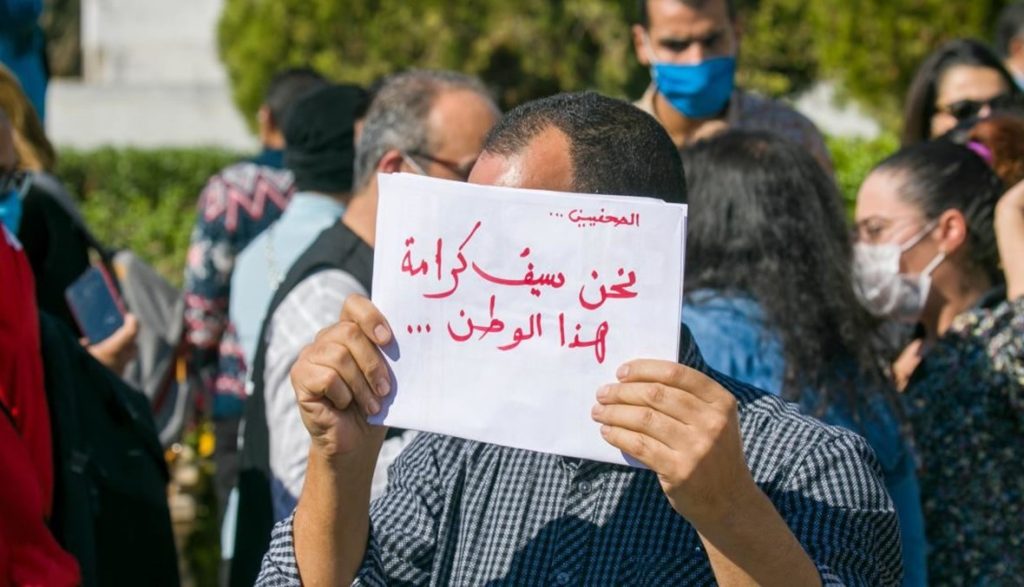 الصحفيين...
نحن سيفُ كرامة
هذا الوطن...